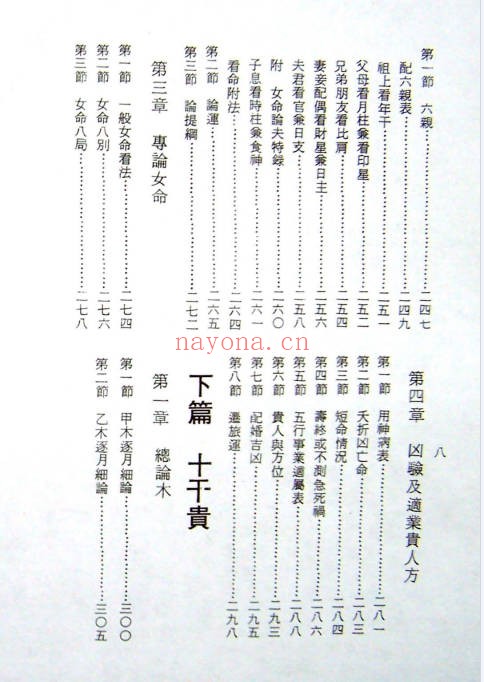 第一節　六親………二四七
配六親表………二四九
祖上看年干………二五一
父母看月柱兼看印星………二五二
兄弟朋友看比肩………二五四
妻妾配偶看財星兼日主………二五六
夫君看官兼日支………二五八
附　女命論夫特録………二六〇
子息看時柱兼食神………二六一
看命附法………二六四
第二節　論運………二六五
第三節　論提綱………二七二
第三章　專論女命
第一節　一般女命看法………二七四
第二節　女命八別………二七六
第三節　女命八局………二七八
八
第四章　凶驗及適業貴人方
第一節　用神病表………二八一
第二節　夭折凶亡命………二八三
第三節　短命情況………二八四
第四節　壽終或不測急死禍………二八六
第五節　五行事業適屬表………二八八
第六節　貴人與方位………二九三
第七節　配婚吉凶………二九五
第八節　遷旅運………二九八
下篇　十干貴
第一章　總論木
第一節　甲木逐月細論………三〇〇
第二節　乙木逐月細論………三〇五
nayona.cn